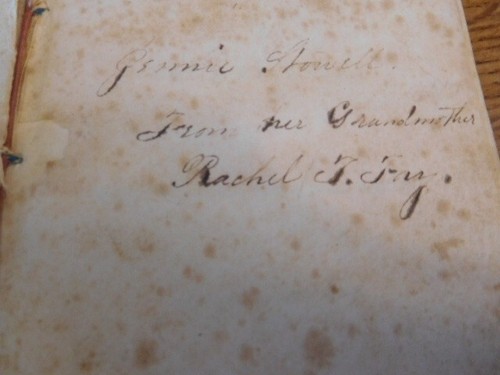 Jennie Stowell.
From her Grandmother
Rachel T. Fay.